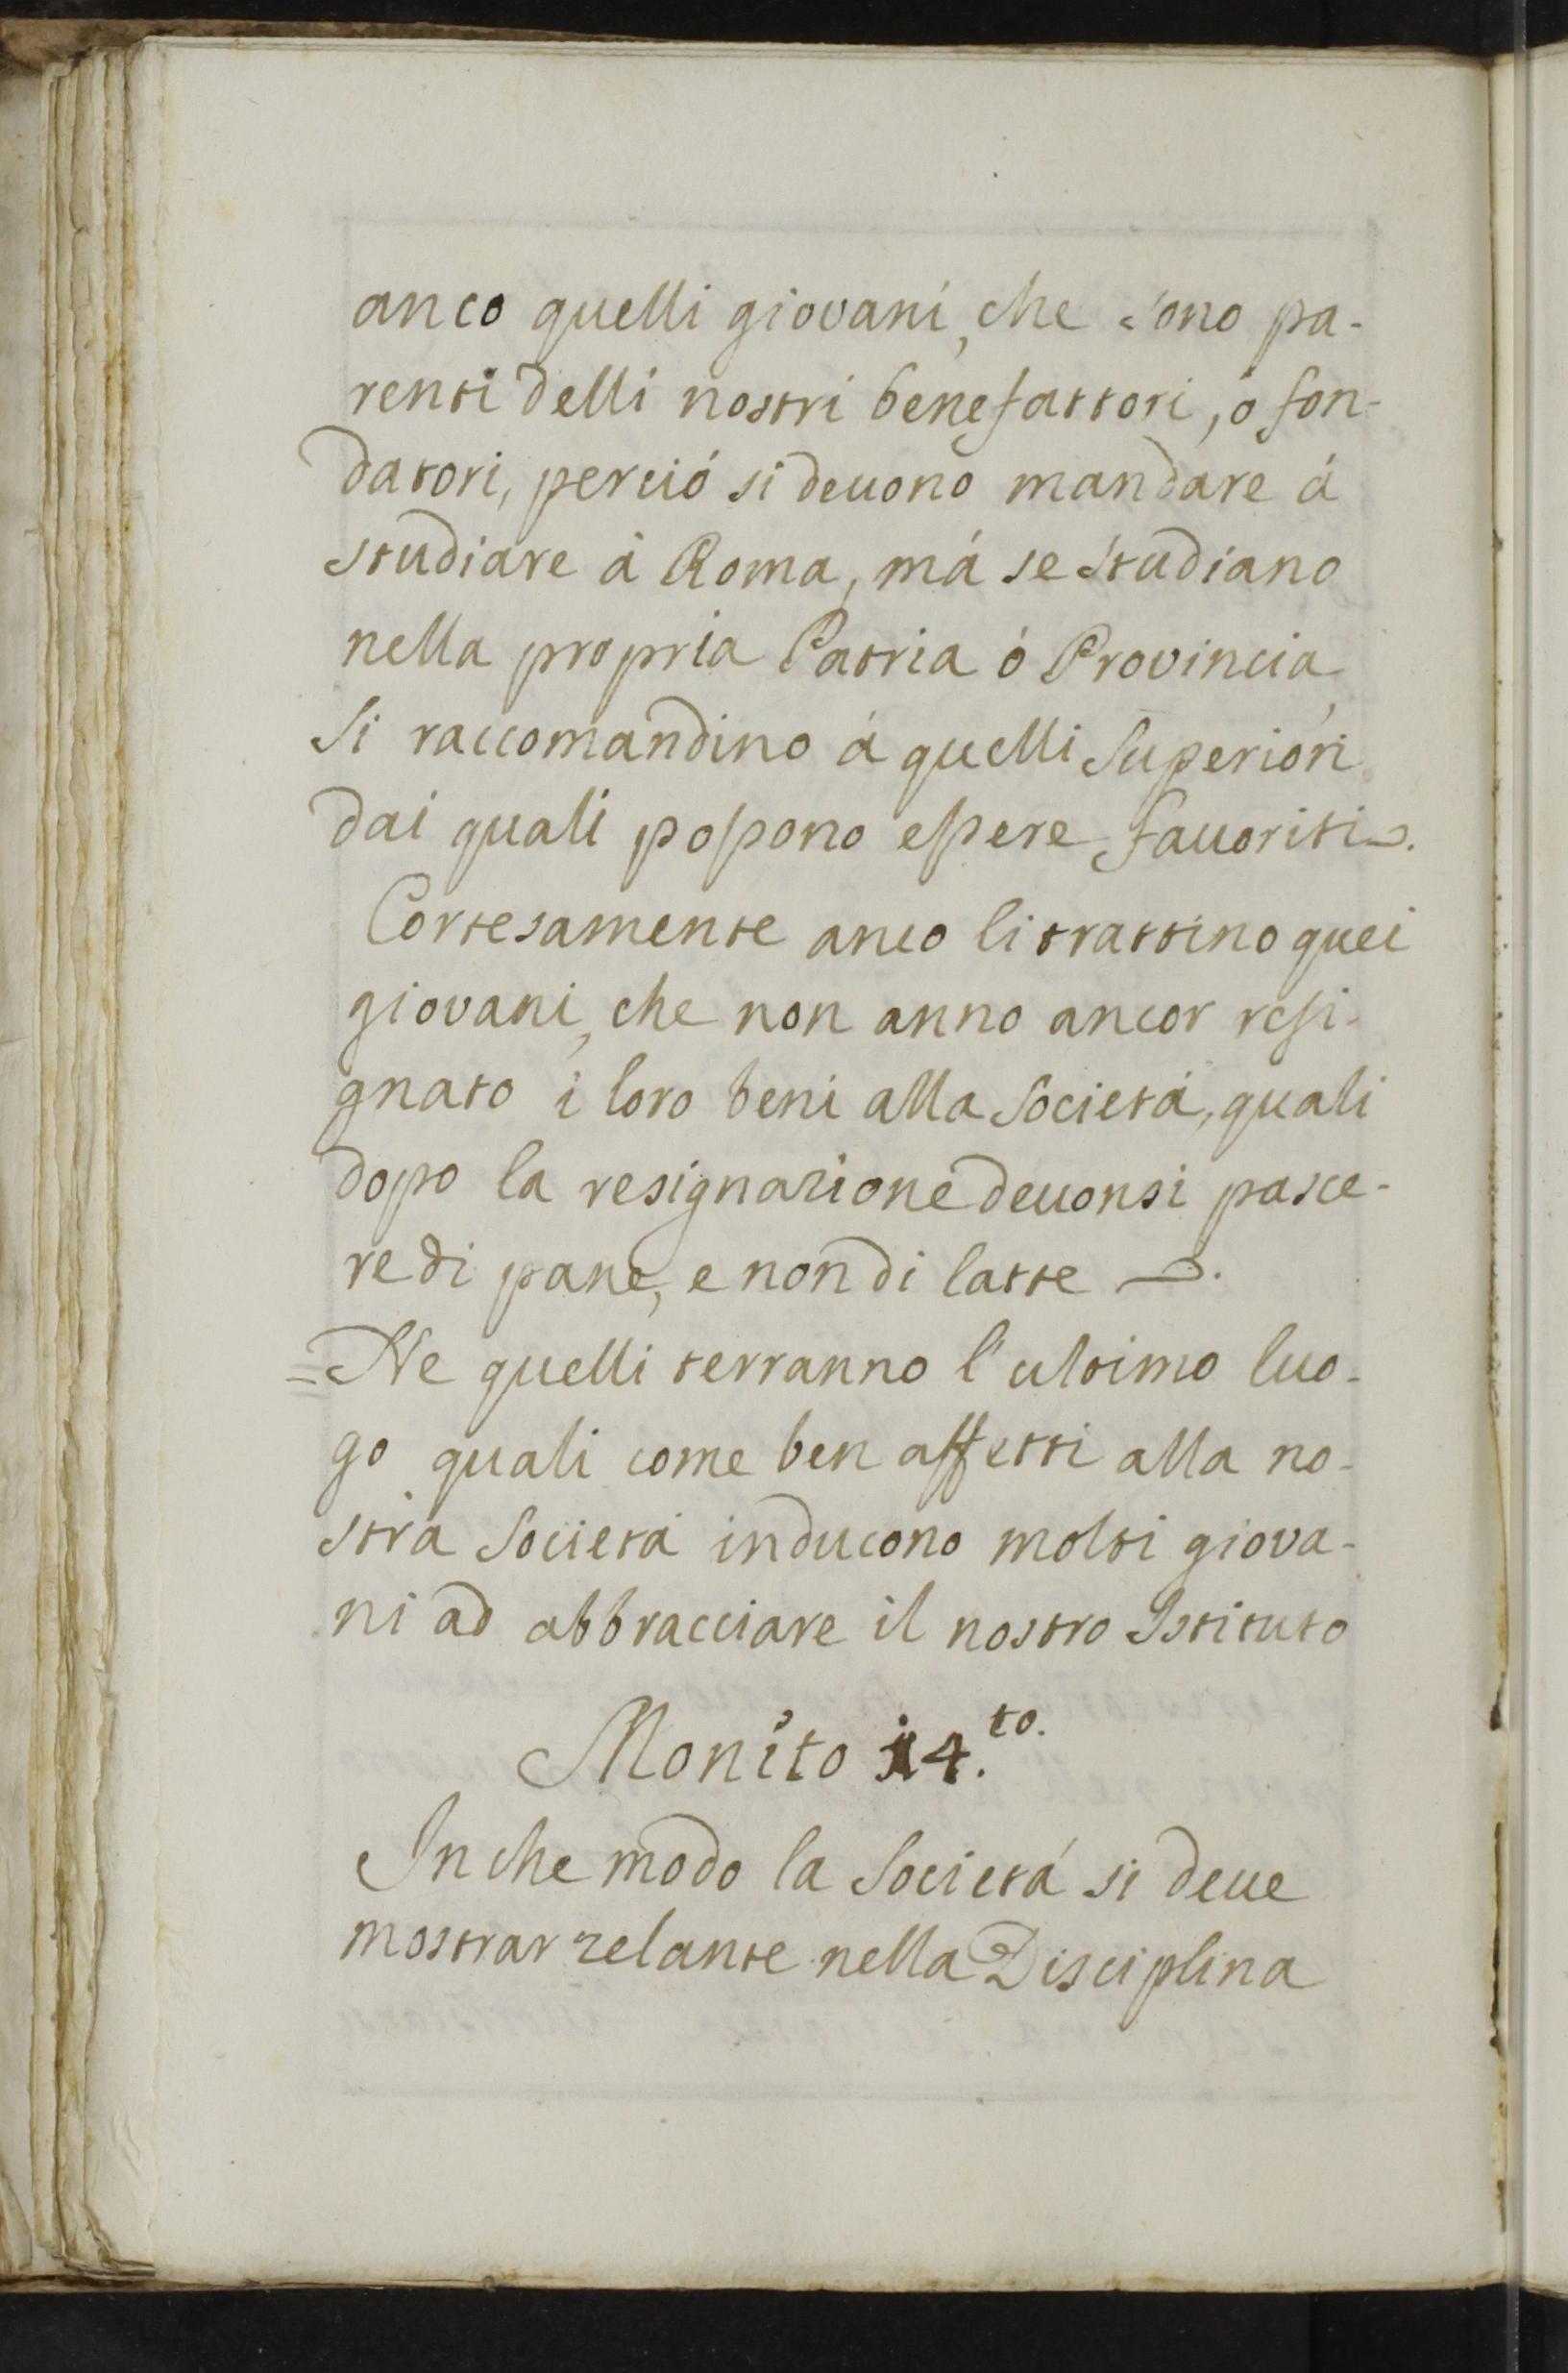 anco quelli giovani, che sono pa-
renti delli nostri benefattori, ó fon-
datori, perció si deuono mandare á
studiare à Roma, má se studiano
nella propria Patria ó Provincia,
Si raccomandino á quelli Superiori
dai quali possono essere fauoriti.
Cortesamente anco li trattino quei
giovani, che non anno ancor resi-
gnato i loro beni alla Societá, quali
dopo la resignazione deuonsi pasce-
re di pane, e non di latte.
=Ne quelli terranno l'ultimo luo-
go quali come ben affetti alla no-
stra Societá inducono molti giova-
ni ad abbracciare il nostro Istituto
Monito 14.to.
In che modo la Societá si deue
mostrar zelante nella Disciplina